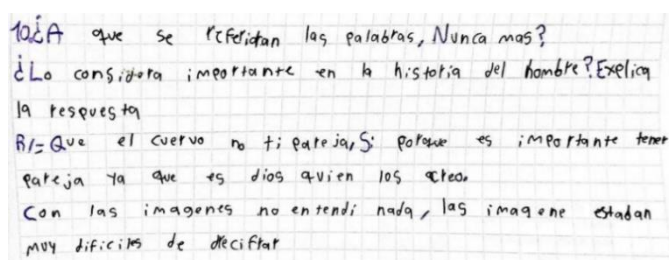 10¿A que se referidran las palabras, Nunca mas?
¿Lo considera importante en la historia del hombre? Explica
la respuesta
R/= Que el cuervo no ti pareja, Si porque es importante tener
pareja ya que es dios quien los creo.
Con las imagenes no entendi nada, las imagene estadan
muy dificiles de decifrar